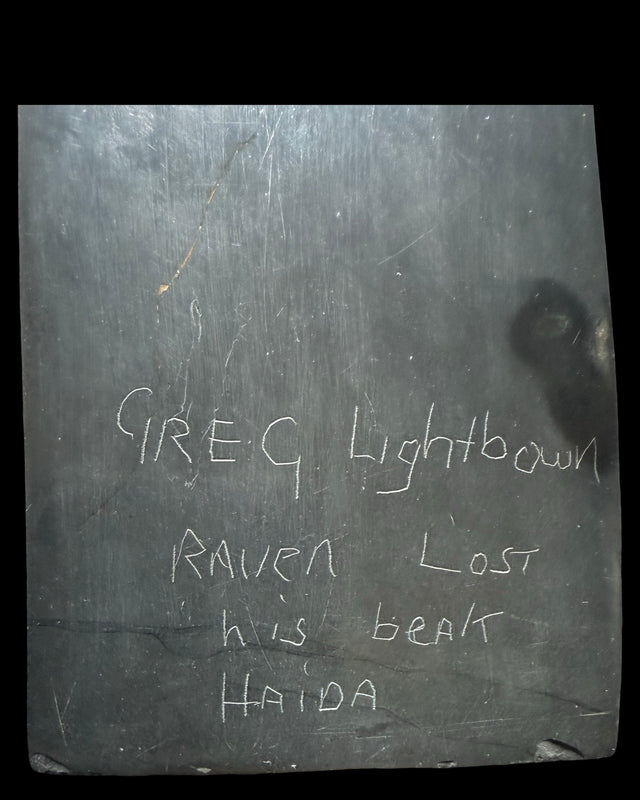 GREG Lightbown
RAVEn LOST
his beak
HAIDA